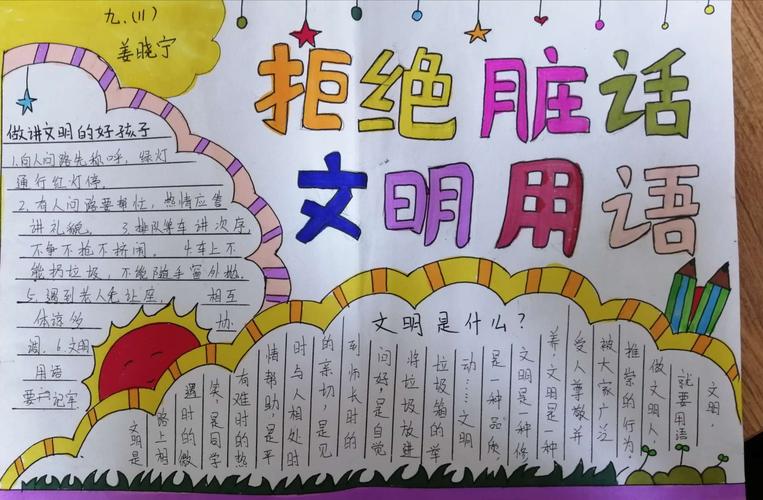 九.(11)
姜晓宁
拒绝脏话
文明用语
做讲文明的好孩子
1.向人问路先称呼,绿灯
通行红灯停.
2.有人问路要帮忙,热情应答
讲礼貌. 3.排队等车讲次序,
不争不抢不拥闹. 4.车上不
能扔垃圾,不能随手窗外抛
5.遇到老人先让座. 相互
体谅多 协
调. 6.文明
用语
要记牢
文明是什么?
文明是
路上相
遇时的微
笑,是同学
有难时的热
情帮助,是平
时与人相处时
的亲切,是见
到师长时的
问好,是自觉
将垃圾放进
垃圾箱的举
动……文明
是一种品质,
文明是一种修
养,文明是一种
受人尊敬并
被大家广泛
推崇的行为,
做文明人
就要用语
文明.